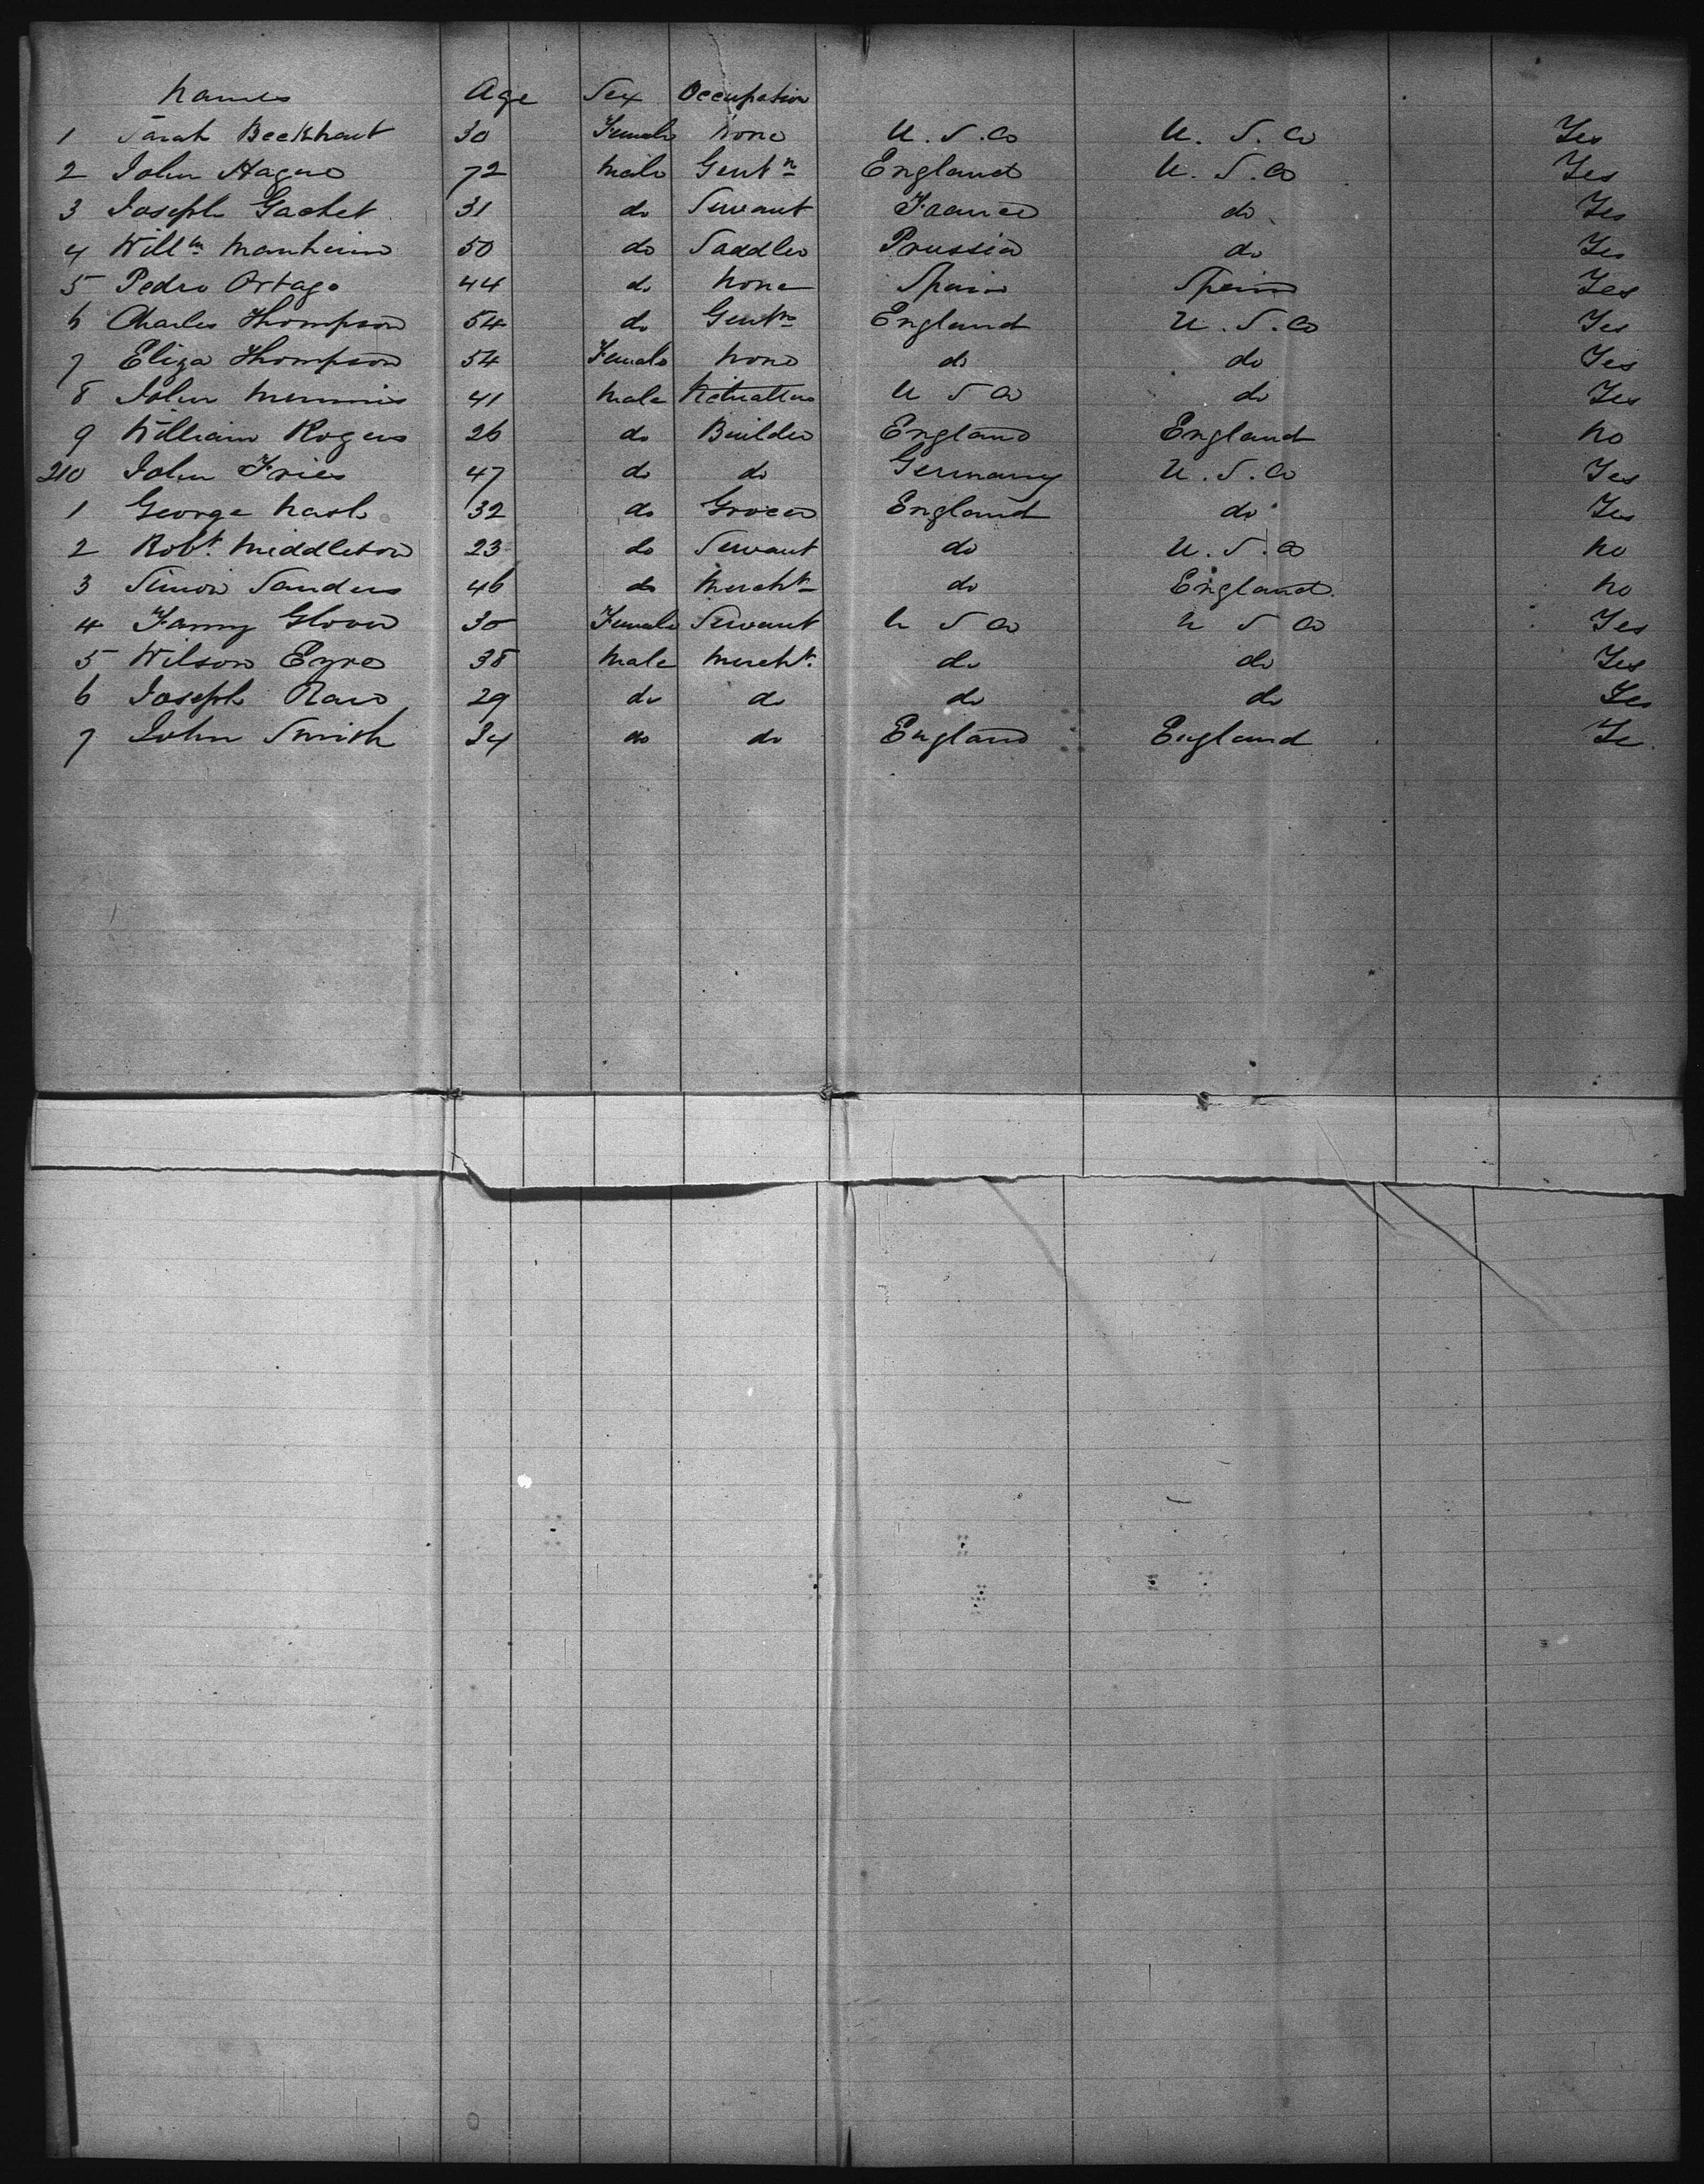 Names Age Sex Occupation
1 Sarah Beekhaut 30 Female None U.S.A Yes
2 John Hague 72 Male Gentn England U.S.A Yes
3 Joseph Gachet 31 do Servant France do Yes
4 Willm Manheim 50 do Saddler Prussia do Yes
5 Pedro Ortago 44 do None Spain Spain Yes
6 Charles Thompson 54 do Gentn England U.S.A Yes
7 Eliza Thompson 54 Female None do do Yes
8 John 41 Male U S A do Yes
9 William Rogers 26 do Builder England England No
210 John Fries 47 do do Germany U.S.A Yes
1 George Nash 32 do Grocer England do Yes
2 Robt. Middleton 23 do Servant do U.S.A No
3 Simon Sanders 46 do Mercht do England. No
4 Fanny Glover 30 Female Servant U S A U S A Yes
5 Wilson Eyre 38 Male Mercht. do do Yes
6 Joseph 29 do do do do Yes
7 John Smith 34 do do England England Ye